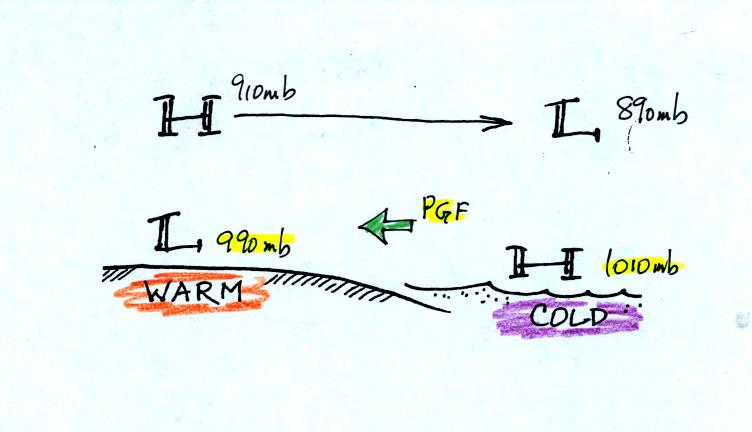 H 910mb L 890mb
L 990mb PGF
H 1010mb
WARM COLD